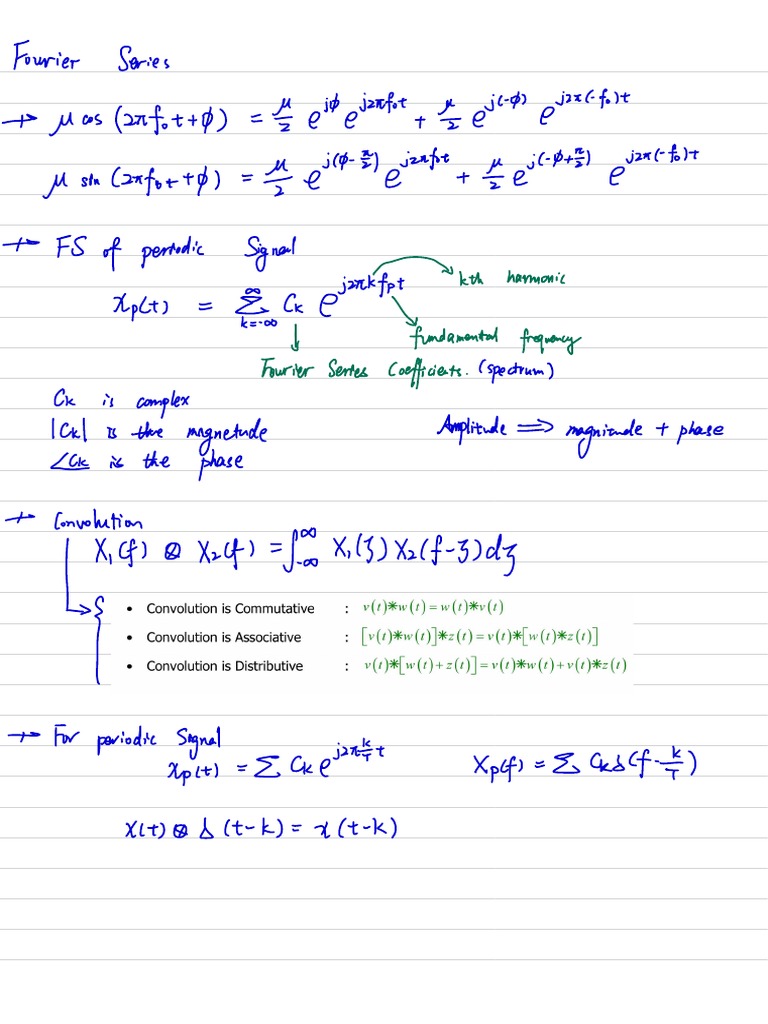 Fourier Series
→ μ cos (2πf₀t+ϕ) = μ/2 e^{jϕ} e^{j2πf₀t} + μ/2 e^{j(-ϕ)} e^{j2π(-f₀)t}
μ sin (2πf₀t+ϕ) = μ/2 e^{j(ϕ-π/2)} e^{j2πf₀t} + μ/2 e^{j(-ϕ+π/2)} e^{j2π(-f₀)t}
→ FS of periodic Signal
x_p(t) = ∑_{k=-∞}^{∞} C_k e^{j2πkf_pt}
kth harmonic
fundamental frequency
Fourier Series Coefficients. (spectrum)
C_k is complex
|C_k| is the magnetude
∠C_k is the phase
Amplitude ⟹ magnitude + phase
→ Convolution
X₁(f) ⊗ X₂(f) = ∫_{-∞}^{∞} X₁(ζ) X₂(f-ζ) dζ
• Convolution is Commutative : v(t)*w(t) = w(t)*v(t)
• Convolution is Associative : [v(t)*w(t)]*z(t) = v(t)*[w(t)*z(t)]
• Convolution is Distributive : v(t)*[w(t)+z(t)] = v(t)*w(t)+v(t)*z(t)
→ For periodic Signal
x_p(t) = ∑ C_k e^{j2π(k/T)t}
X_p(f) = ∑ C_k δ(f - k/T)
x(t) ⊗ δ(t-k) = x(t-k)